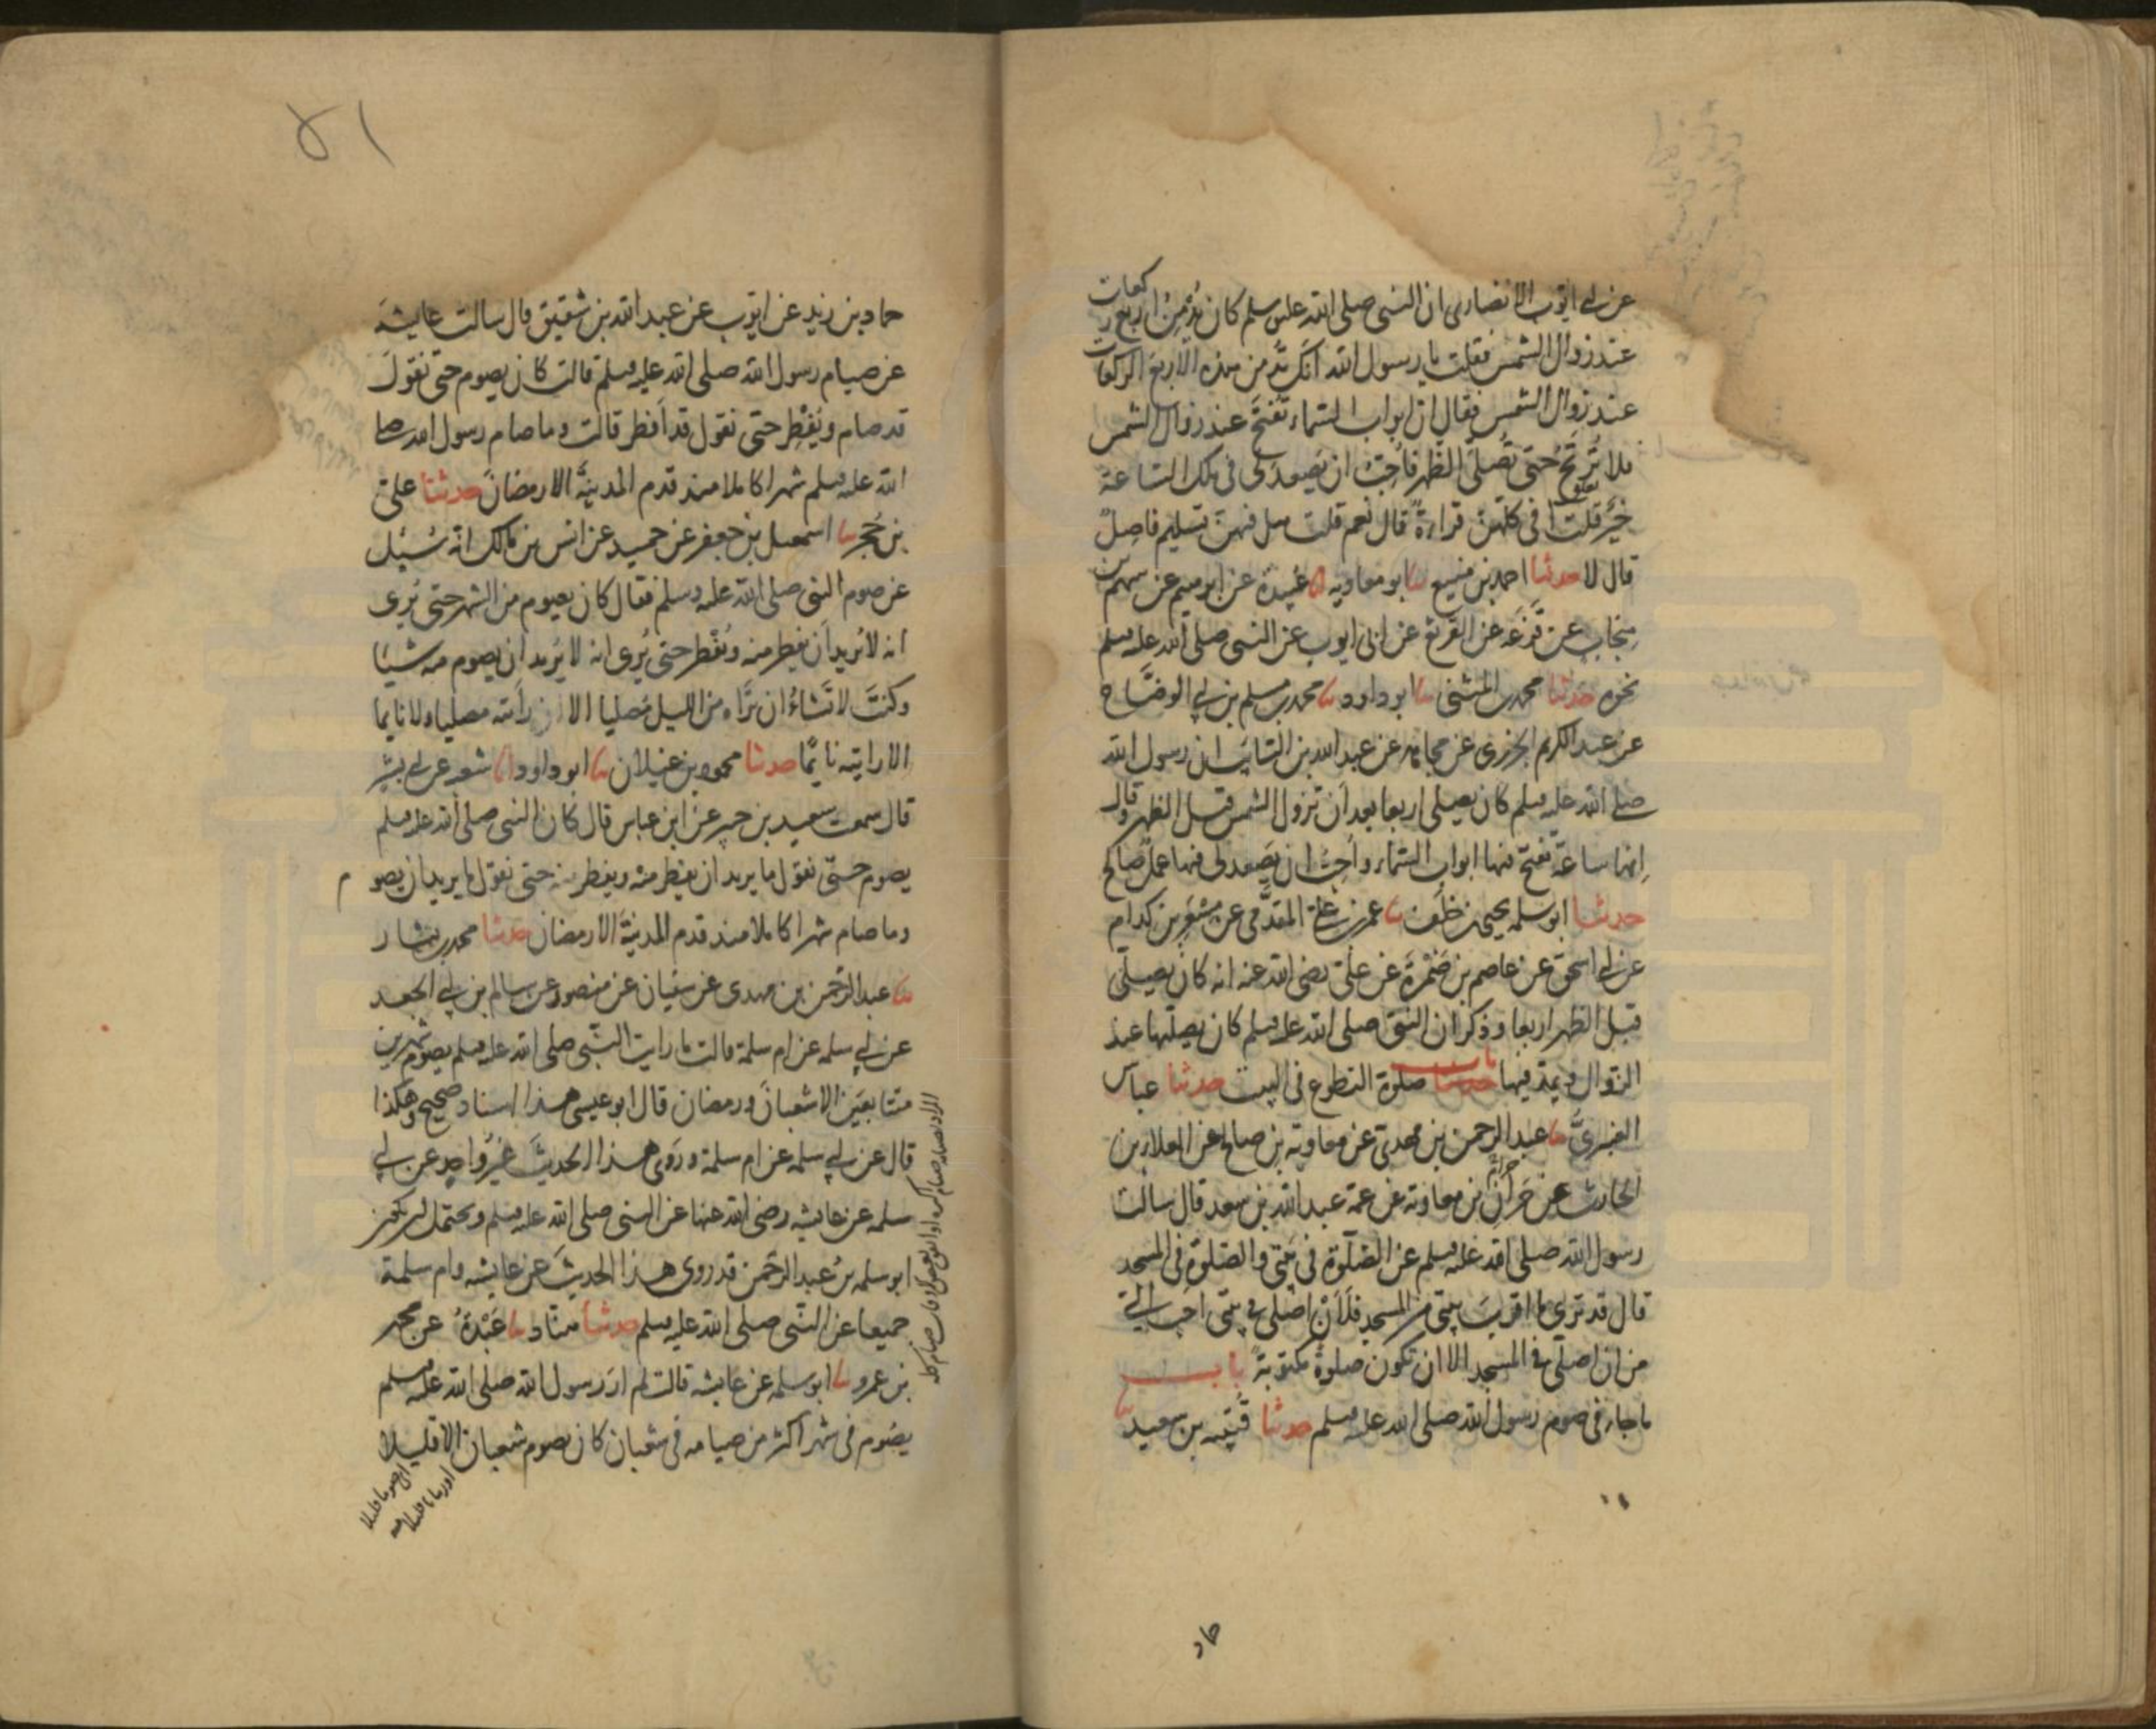 عن ابي ايوب الانصاري ان النبي صلى الله عليه وسلم كان يدمن اربع ركعات
عند زوال الشمس فقلت يا رسول الله انك تدمن هذه الاربع الركعات
عند زوال الشمس فقال ان ابواب السماء تفتح عند زوال الشمس
فلا تُرتَجُ حتى تُصلى الظهر فاُحِبّ ان يصعد لي في تلك الساعة
خير قلت افي كلهن قراءة قال نعم قلت هل فيهن تسليم فاصل
قال لا حدثنا احمد بن منيع نا ابو معاوية انا عُبيدة عن ابرهيم عن سهم بن
منجاب عن قزعة عن القرثع عن ابي ايوب عن النبي صلى الله عليه وسلم
نحوه حدثنا محمد بن المثنى نا ابو داود نا محمد بن مسلم بن ابي الوضاح
عن عبد الكريم الجزري عن مجاهد عن عبد الله بن السائب ان رسول الله
صلى الله عليه وسلم كان يصلى اربعا بعد ان تزول الشمس قبل الظهر وقال
انها ساعة تفتح فيها ابواب السماء واُحِبّ ان يصعد لي فيها عمل صالح
حدثنا ابو سلمه يحيى بن خلف نا عمر بن علي المقدمي عن مسعر بن كدام
عن ابي اسحق عن عاصم بن ضمرة عن علي رضى الله عنه انه كان يصلي
قبل الظهر اربعا وذكر ان النبي صلى الله عليه وسلم كان يصليها عند
الزوال ويمد فيها باب صلوة التطوع في البيت حدثنا عباس
العنبري نا عبد الرحمن بن مهدي عن معاوية بن صالح عن العلاء بن
الحارث عن حرام بن معاوية عن عمه عبد الله بن سعد قال سالت
رسول الله صلى الله عليه وسلم عن الصلوة في بيتي والصلوة في المسجد
قال قد ترى ما اقرب بيتي من المسجد فلأن اصلي في بيتي احب الي
من ان اصلي في المسجد الا ان تكون صلوة مكتوبة باب
ما جاء في صوم رسول الله صلى الله عليه وسلم حدثنا قتيبه بن سعيد نا
حماد
٥١
حماد بن زيد عن ايوب عن عبد الله بن شقيق قال سالت عايشة
عن صيام رسول الله صلى الله عليه وسلم قالت كان يصوم حتى نقول
قد صام ويُفطر حتى نقول قد افطر قالت وما صام رسول الله صلى
الله عليه وسلم شهرا كاملا منذ قدم المدينة الا رمضان حدثنا علي
بن حُجر نا اسمعيل بن جعفر عن حميد عن انس بن مالك انه سُئل
عن صوم النبي صلى الله عليه وسلم فقال كان يصوم من الشهر حتى يُرى
انه لا يُريد ان يفطر منه ويُفطر حتى يُرى انه لا يُريد ان يصوم منه شيئا
وكنتَ لا تشاءُ ان تراه من الليل مُصليا الا ان رأيته مصليا ولا نايما
الا رايته نايمًا حدثنا محمود بن غيلان نا ابو داود انا شعبه عن ابي بشر
قال سمعت سعيد بن جبير عن ابن عباس قال كان النبي صلى الله عليه وسلم
يصوم حتّى نقول ما يريد ان يفطر منه ويفطر منه حتى نقول ما يريد ان يصوم
وما صام شهرا كاملا منذ قدم المدينة الا رمضان حدثنا محمد بن بشار
نا عبد الرحمن بن مهدي عن سفيان عن منصور عن سالم بن ابي الجعد
عن ابي سلمه عن ام سلمة قالت ما رايت النبي صلى الله عليه وسلم يصوم شهرين
متتابعين الا شعبان ورمضان قال ابو عيسى هذا اسناد صحيح وهكذا
قال عن ابي سلمه عن ام سلمة وروى هذا الحديث غير واحد عن ابي
سلمه عن عايشه رضى الله عنها عن النبي صلى الله عليه وسلم ويحتمل ان يكون
ابو سلمه بن عبد الرحمن قد روى هذا الحديث عن عايشه وام سلمة
جميعا عن النبي صلى الله عليه وسلم حدثنا هناد نا عَبْدَةُ عن محمد
بن عمرو نا ابو سلمه عن عايشه قالت لم ار رسول الله صلى الله عليه وسلم
يصوم في شهر اكثر من صيامه في شعبان كان يصوم شعبان الا قليلا